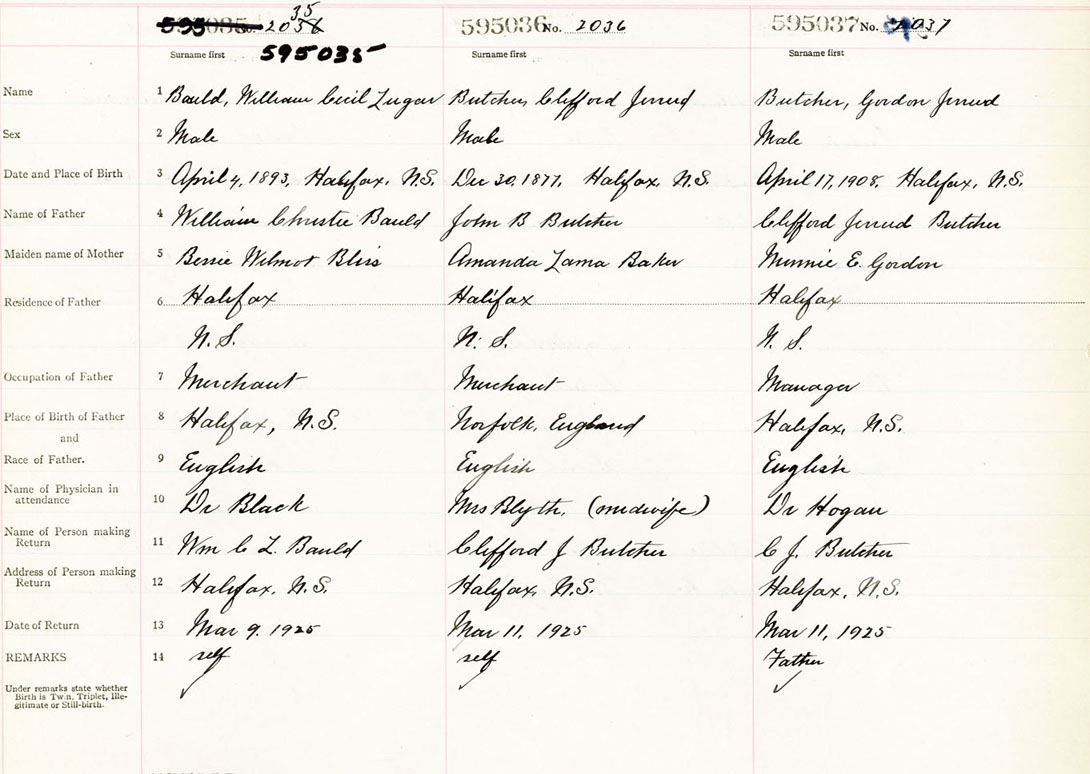 35
595035 No. 2036 595036 No. 2036 595037 No. 2037
Surname first 595035 Surname first Surname first
Name 1 Bauld, William Cecil Zugar Butcher, Clifford Jerred Butcher, Gordon Jerred
Sex 2 Male Male Male
Date and Place of Birth 3 April 4, 1893, Halifax, N.S. Dec 30, 1877, Halifax, N.S. April 17, 1908, Halifax, N.S.
Name of Father 4 William Christie Bauld John B Butcher Clifford Jerred Butcher
Maiden name of Mother 5 Bessie Wilmot Bliss Amanda Zama Baker Minnie E. Gordon
Residence of Father 6 Halifax Halifax Halifax
N.S. N.S. N.S.
Occupation of Father 7 Merchant Merchant Manager
Place of Birth of Father 8 Halifax, N.S. Norfolk, England Halifax, N.S.
and
Race of Father. 9 English English English
Name of Physician in
attendance 10 Dr Black Mrs Blyth, (midwife) Dr Hogan
Name of Person making
Return 11 Wm C Z. Bauld Clifford J Butcher C J. Butcher
Address of Person making
Return 12 Halifax, N.S. Halifax, N.S. Halifax, N.S.
Date of Return 13 Mar 9. 1925 Mar 11, 1925 Mar 11, 1925
REMARKS 14 self self Father
Under remarks state whether
Birth is Twin, Triplet, Ille-
gitimate or Still-birth.